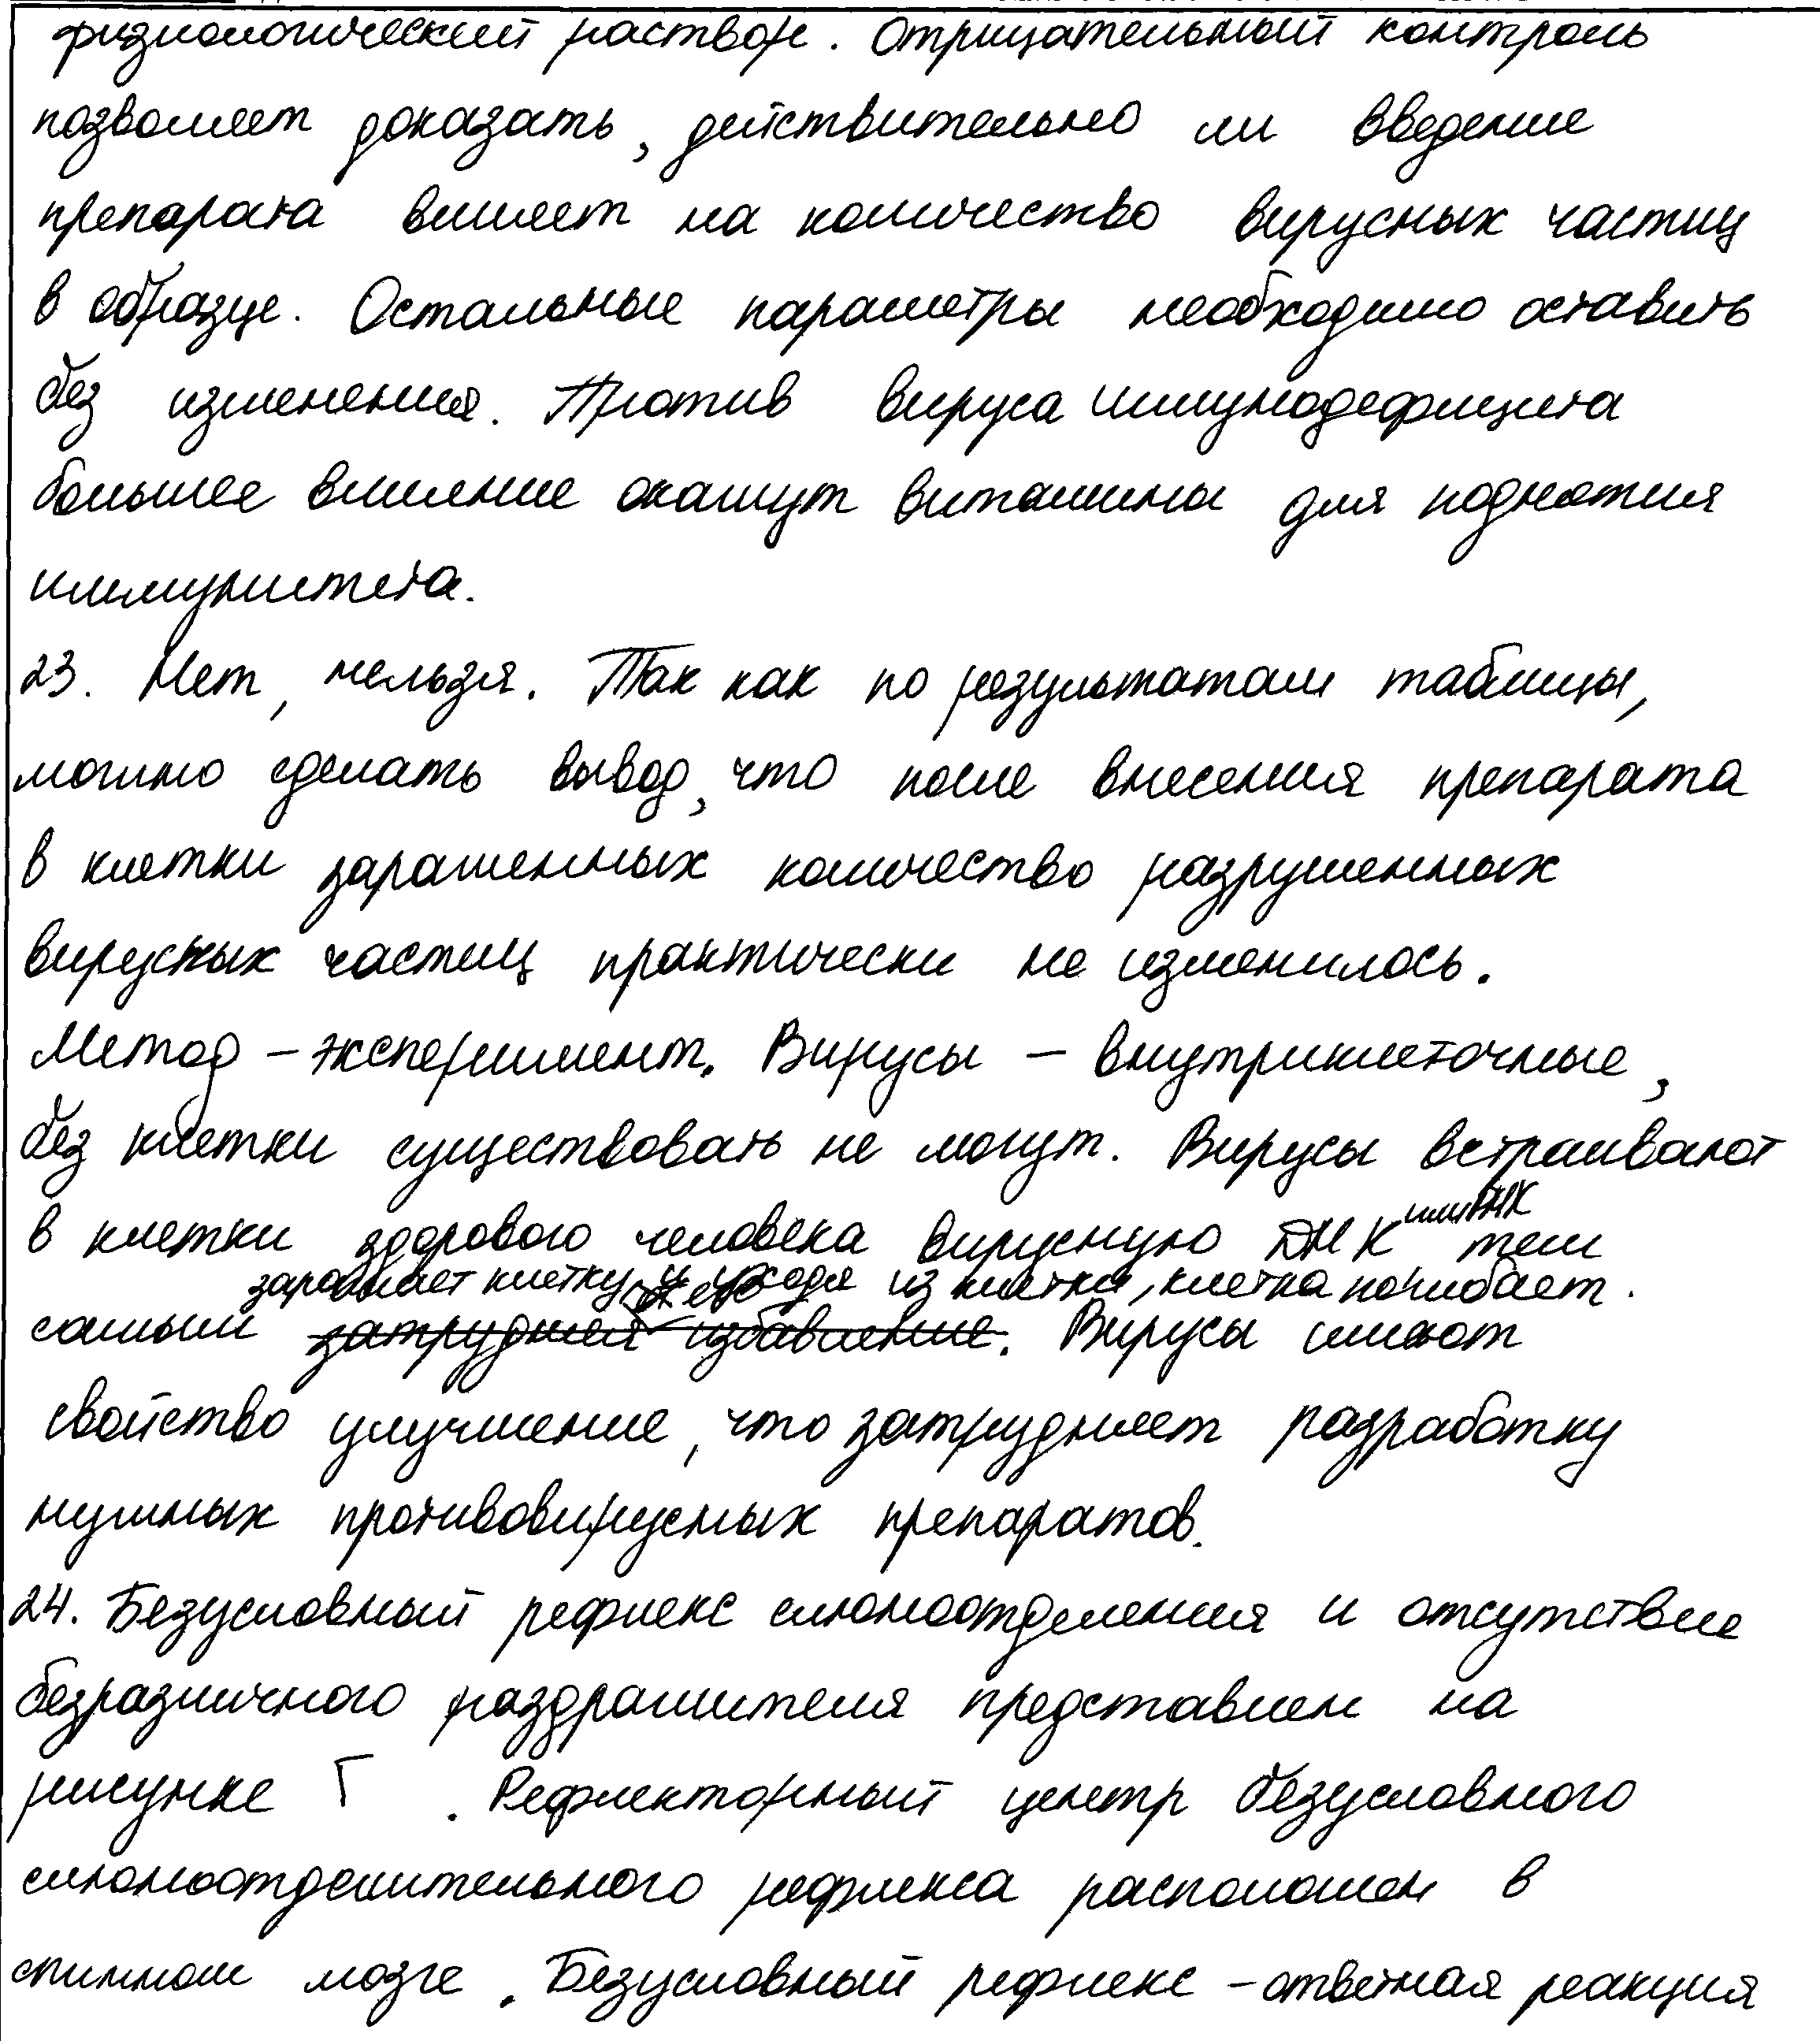 физиологический раствор. Отрицательный контроль
позволяет доказать, действительно ли введение
препарата влияет на количество вирусных частиц
в образце. Остальные параметры необходимо оставить
без изменения. Против вируса иммунодефицита
большее влияние окажут витамины для поднятия
иммунитета.
23. Нет, нельзя. Так как по результатам таблицы,
можно сделать вывод, что после внесения препарата
в клетки зараженных количество разрушенных
вирусных частиц практически не изменилось.
Метод – эксперимент. Вирусы – внутриклеточные,
без клетки существовать не могут. Вирусы встраивают
или РНК
в клетки здорового человека вирусную ДНК тем
заражает клетку, и уходя из клетки, клетка погибает.
самым затрудняя избавление. Вирусы имеют
свойство улучшение, что затрудняет разработку
нужных противовирусных препаратов.
24. Безусловный рефлекс слюноотделения и отсутствие
безразличного раздражителя представлен на
рисунке Г. Рефлекторный центр безусловного
слюноотделительного рефлекса расположен в
спинном мозге. Безусловный рефлекс – ответная реакция